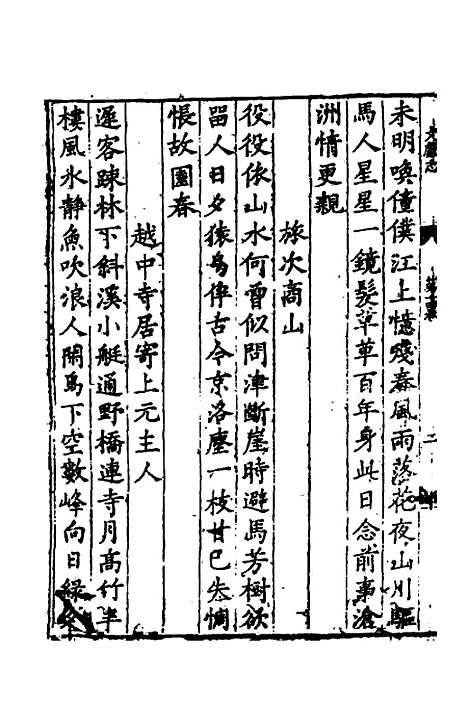 未明喚僮僕江上憶殘春風雨落花夜山川驅
馬人星星一鏡髮草草百年身此日念前事滄
洲情更親
旅次商山
役役依山水何曾似問津斷崖時避馬芳樹欲
留人日夕猿鳥伴古今京洛塵一枝甘已失惆
悵故園春
越中寺居寄上元主人
遲客疎林下斜溪小艇通野橋連寺月高竹半
樓風水靜魚吹浪人閑鳥下空數峰向日緑